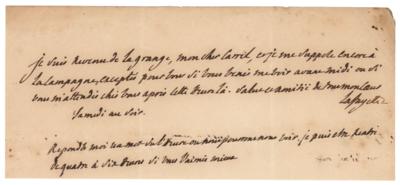 je suis revenu de lagrange, mon cher carril, et je me suppose encore à
la campagne, excepté pour vous si vous venés me voir avant midi ou si
vous m'attendés chés vous après cette heure là. salut et amitié de tout mon coeur
Lafayette
Samedi au soir.
Repondés moi un mot sur l'heure ou nous pourrons nous voir. je puis etre
de quatre à six heures si vous l'aimés mieux